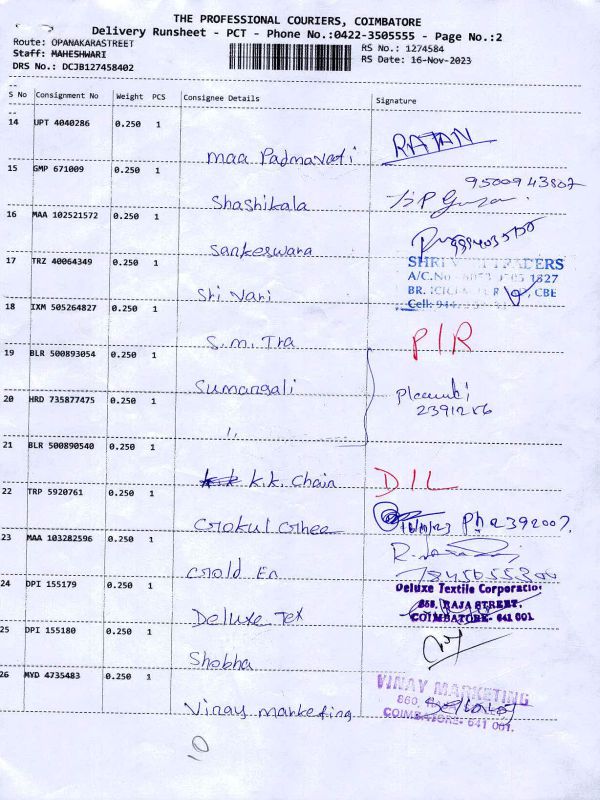 THE PROFESSIONAL COURIERS, COIMBATORE
Delivery Runsheet - PCT - Phone No.:0422-3505555 - Page No.:2
Route: OPANAKARASTREET
RS No.: 1274584
Staff: MAHESHWARI
RS Date: 16-Nov-2023
DRS No.: DCJB127458402
S No Consignment No Weight PCS Consignee Details Signature
14 UPT 4040286 0.250 1
maa Padmavati RATAN
15 GMP 671009 0.250 1
Shashikala
16 MAA 102521572 0.250 1
Sankeswara
17 TRZ 40064349 0.250 1
Sri Vari
SHRI TRADERS
A/C.No
BR. ICICI CBE
Cell:
18 IXM 505264827 0.250 1
S.m. Tra P/R
19 BLR 500893054 0.250 1
Sumangali
20 HRD 735877475 0.250 1
"
21 BLR 500890540 0.250 1
K.K. Chain D.I L
22 TRP 5920761 0.250 1
Gokul Ghee
23 MAA 103282596 0.250 1
Gold En
24 DPI 155179 0.250 1
Deluxe Tex
Deluxe Textile Corporation
868, RAJA STREET,
COIMBATORE- 641 001.
25 DPI 155180 0.250 1
Shobha
26 MYD 4735483 0.250 1
Vinay marketing
VINAY MARKETING
860,
COIMBATORE- 641 001.
10